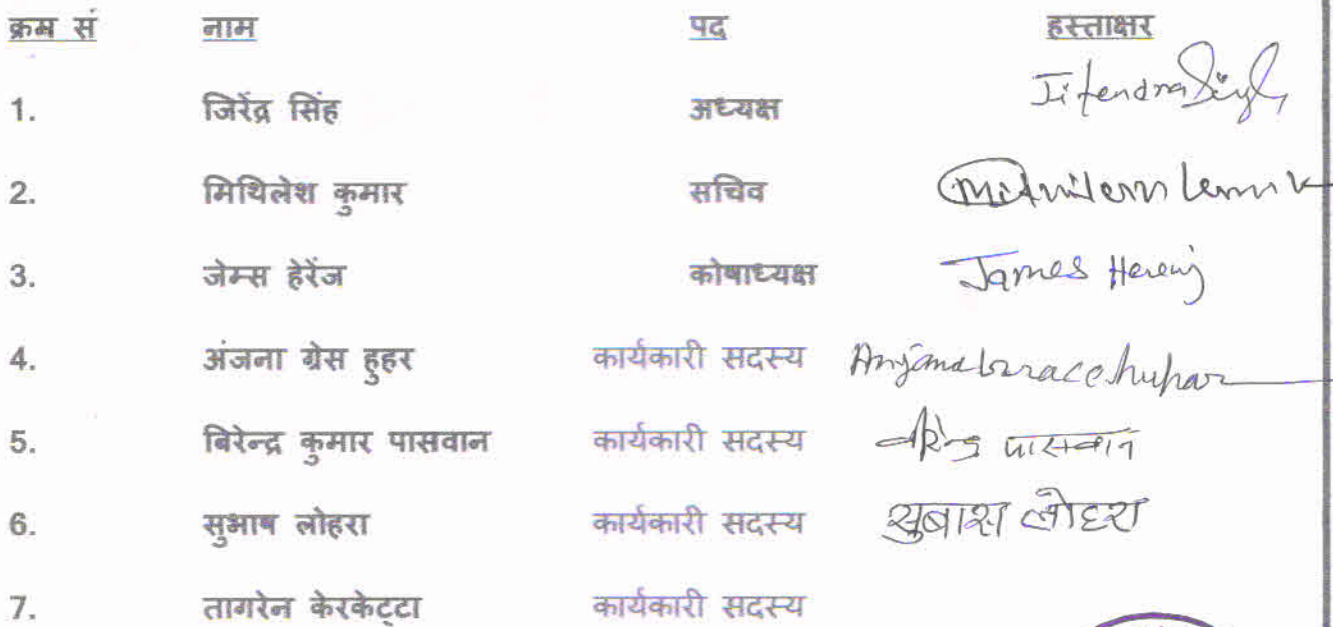 क्रम सं नाम पद हस्ताक्षर
1. जिरेंद्र सिंह अध्यक्ष Jitendra Singh
2. मिथिलेश कुमार सचिव
3. जेम्स हेरेंज कोषाध्यक्ष James Herenj
4. अंजना ग्रेस हुहर कार्यकारी सदस्य
5. बिरेन्द्र कुमार पासवान कार्यकारी सदस्य पासवान
6. सुभाष लोहरा कार्यकारी सदस्य सुबास लोहरा
7. तागरेन केरकेट्टा कार्यकारी सदस्य